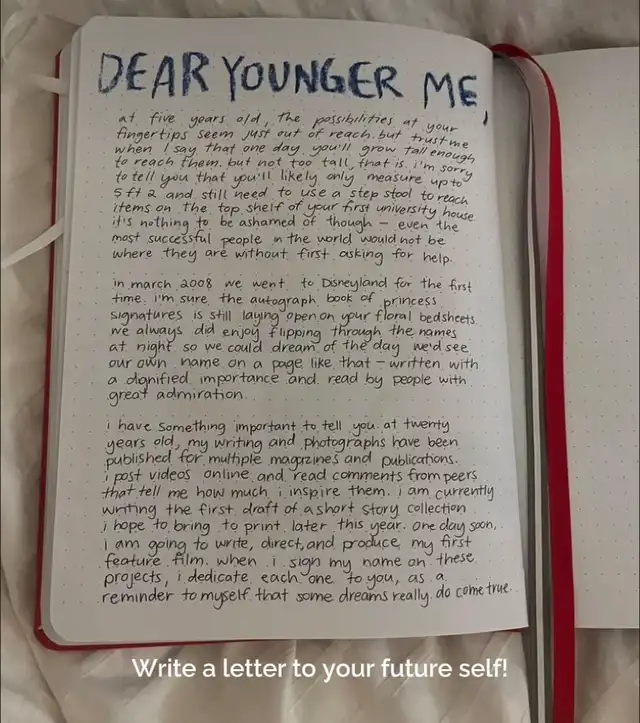 DEAR YOUNGER ME,
at five years old, the possibilities at your
fingertips seem just out of reach. but trust me
when i say that one day, you'll grow tall enough
to reach them. but not too tall, that is. i'm sorry
to tell you that you'll likely only measure up to
5ft2 and still need to use a step stool to reach
items on the top shelf of your first university house.
it's nothing to be ashamed of though – even the
most successful people in the world would not be
where they are without first asking for help.
in march 2008 we went to Disneyland for the first
time. i'm sure the autograph book of princess
signatures is still laying open on your floral bedsheets.
we always did enjoy flipping through the names
at night so we could dream of the day we'd see
our own name on a page like that – written with
a dignified importance and read by people with
great admiration.
i have something important to tell you. at twenty
years old, my writing and photographs have been
published for multiple magazines and publications.
i post videos online and read comments from peers
that tell me how much i inspire them. i am currently
writing the first draft of a short story collection
i hope to bring to print later this year. one day soon,
i am going to write, direct, and produce my first
feature film. when i sign my name on these
projects, i dedicate each one to you, as a
reminder to myself that some dreams really do come true.
Write a letter to your future self!